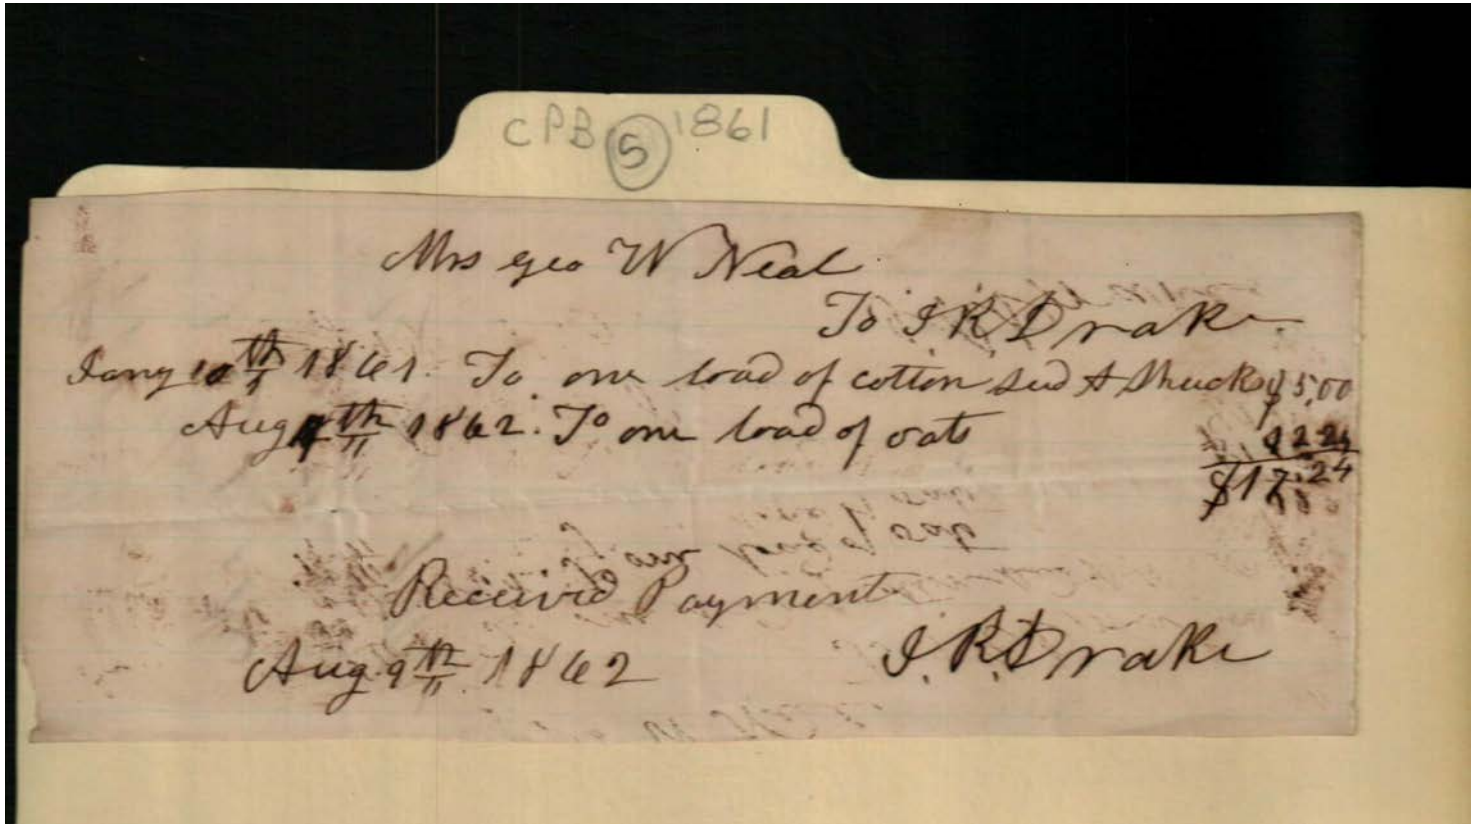 CPB 5 1861
Mrs Geo W Neal
To I. R. Drake
Jany 10th 1861. To one load of cotton seed & Shucks $5,00
Aug 9th 1862. To one load of oats 12.24
$17.24
Received Payment
Aug 9th 1862 I. R. Drake